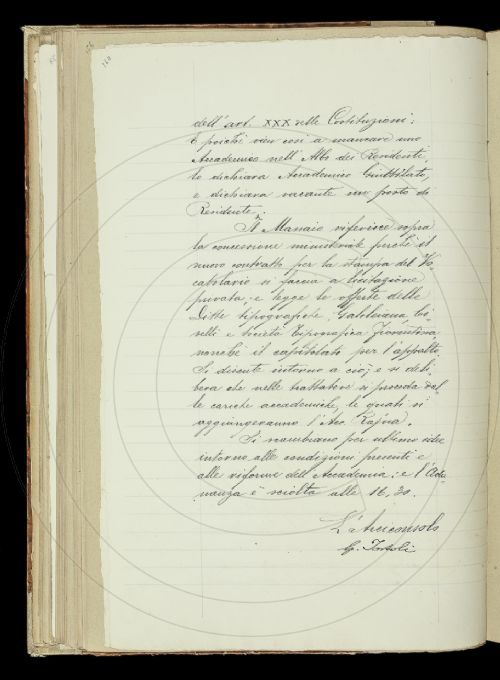 dell'art. XXX delle Costituzioni;
E poichè vien così a mancare uno
Accademico nell'Albo dei Residente,
lo dichiara Accademico Giustificato,
e dichiara vacante un posto di
Residente.
Il Massaio riferisce sopra
la concessione ministeriale perchè il
nuovo contratto per la stampa del Vo-
cabolario si faccia a licitazione
privata, e legge le offerte delle
Ditte tipografiche Galileiana, Ci-
velli e Società Tipografica Fiorentina
nonchè il capitolato per l'appalto.
Si discute intorno a ciò; e si deli-
bera che nelle trattative si proceda dal-
le cariche accademiche, le quali si
aggiungeranno l'Acc. Rajna.
Si scambiano per ultimo idee
intorno alle condizioni presenti e
alle riforme dell'Accademia; e l'Adu-
nanza è sciolta alle 16,30.
L'Arciconsolo